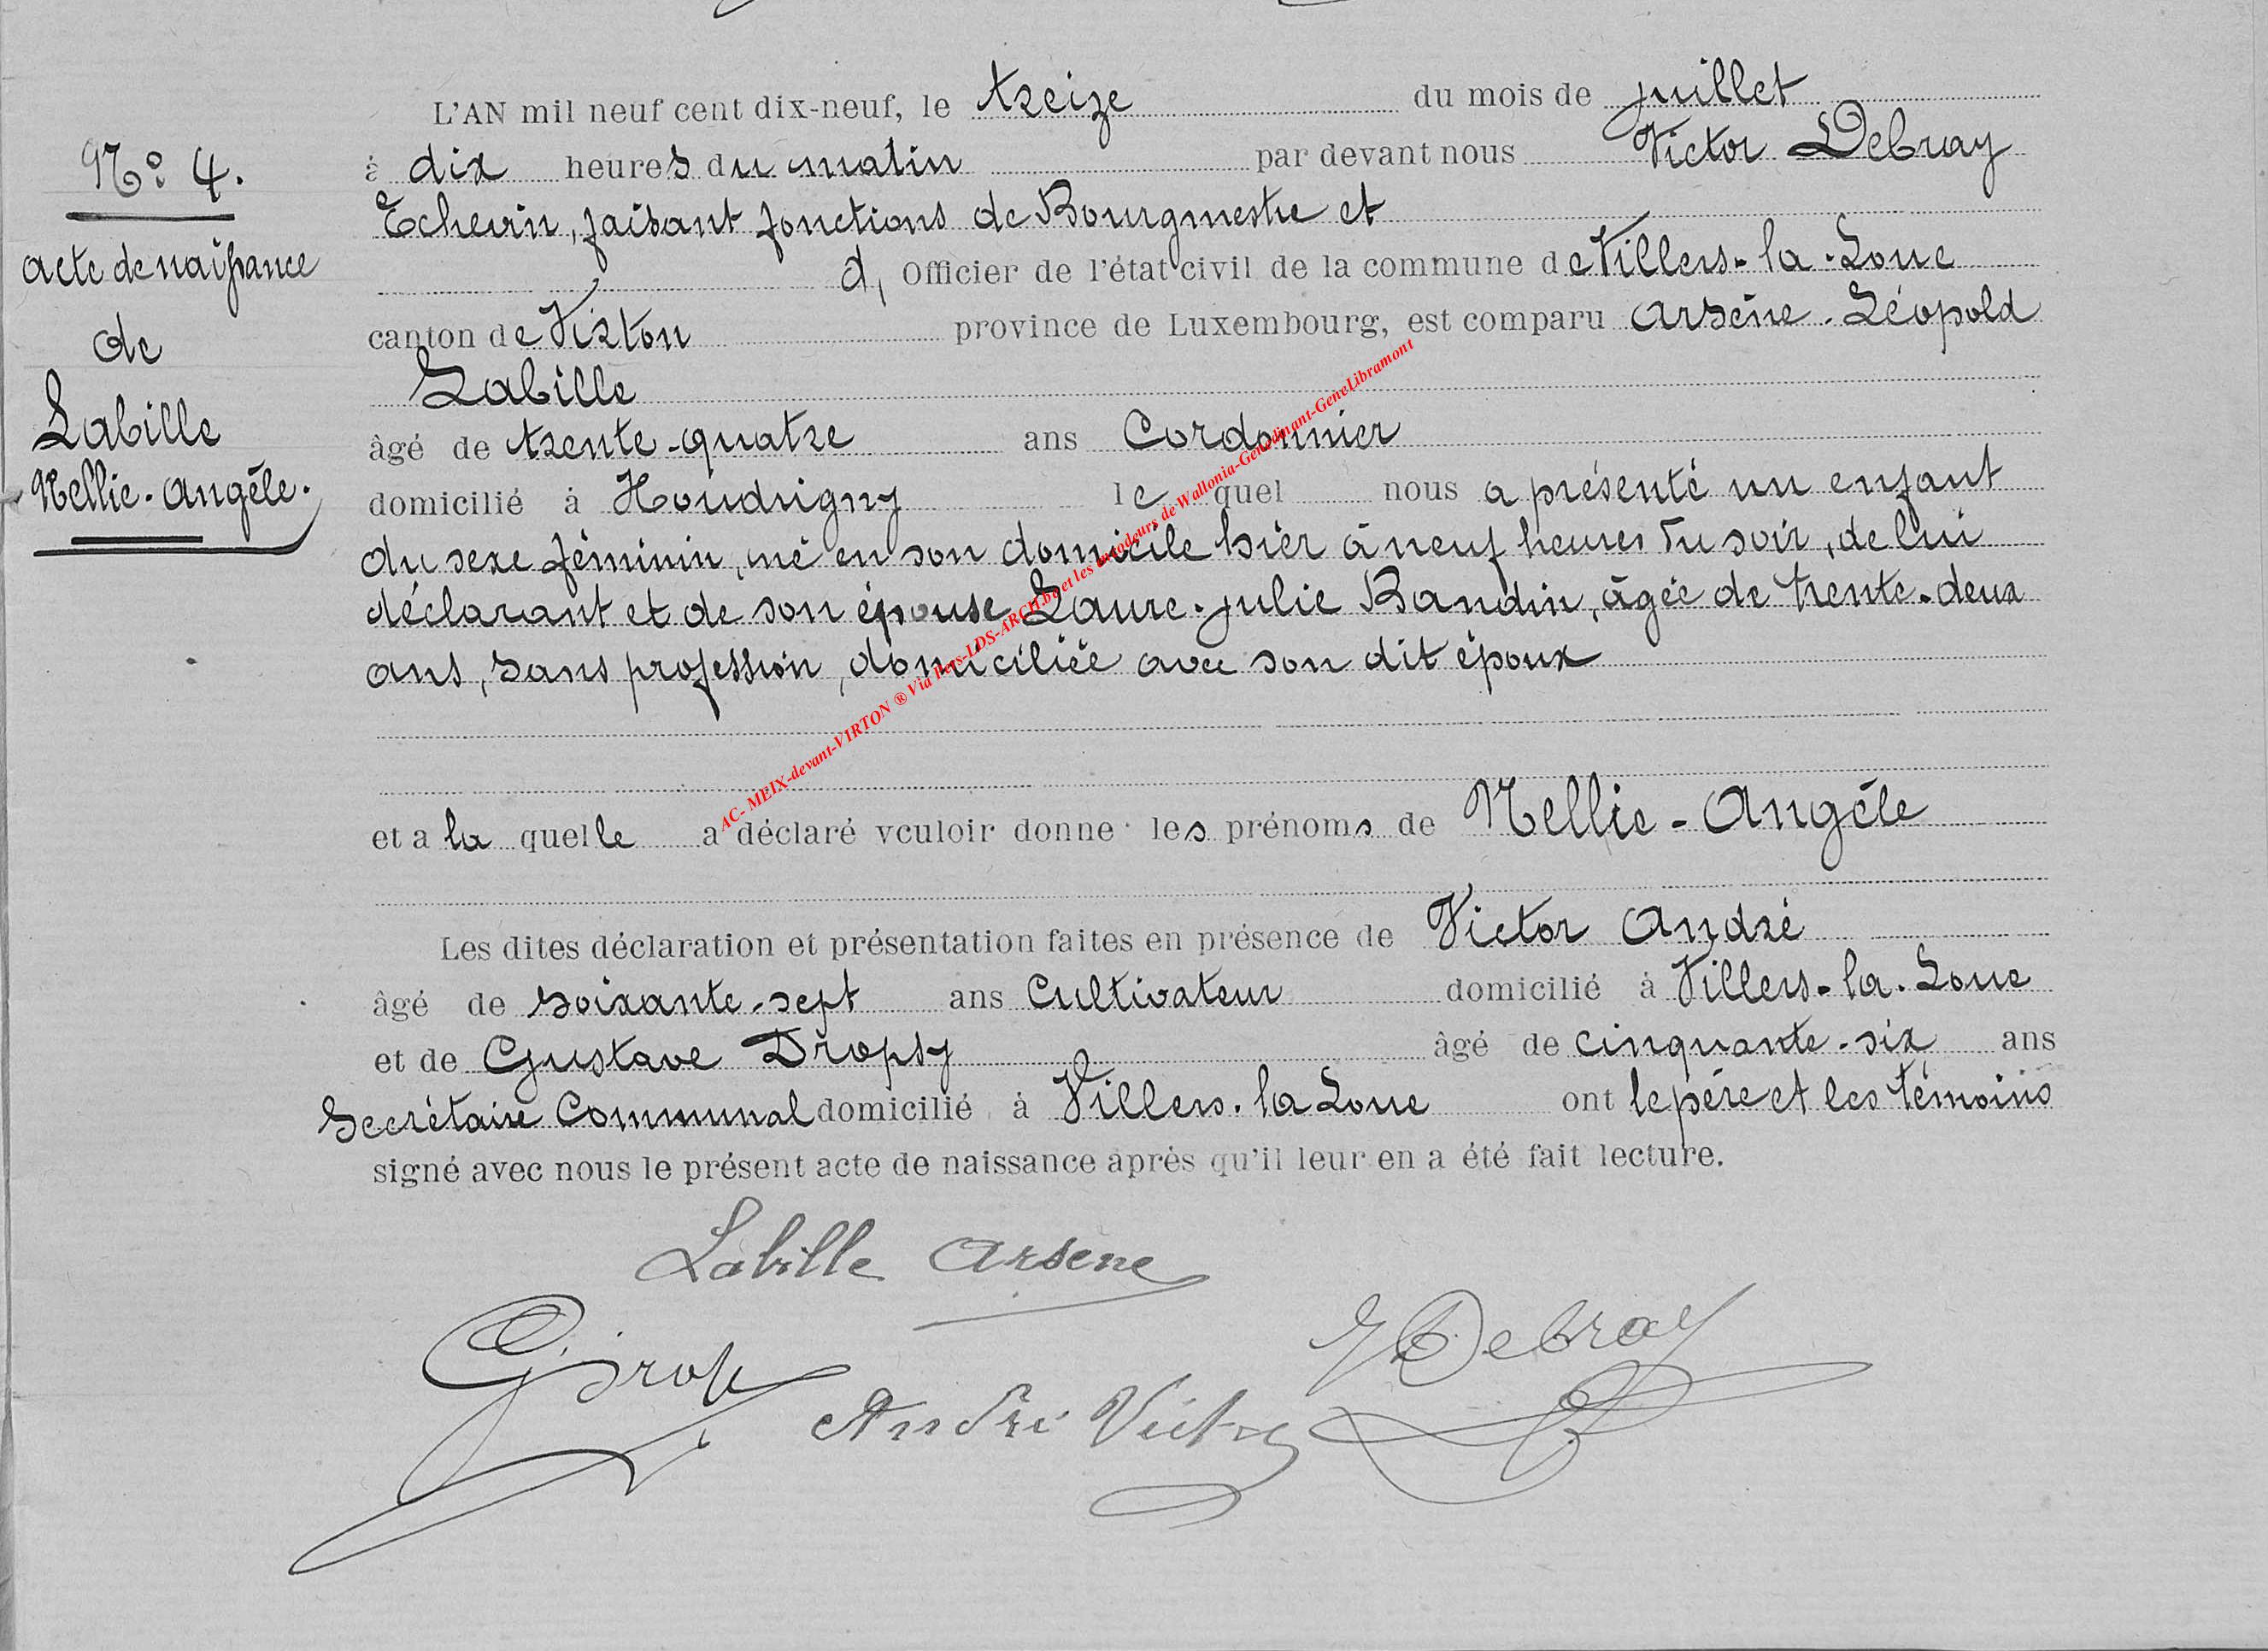 N° 4.
acte de naissance
de
Labille
Nellie-Angèle.
L'AN mil neuf cent dix-neuf, le treize du mois de juillet
à dix heures du matin par devant nous Victor Debray
Echevin, faisant fonctions de Bourgmestre et
d, Officier de l'état civil de la commune de Villers-la-Loue
canton de Virton province de Luxembourg, est comparu Arsène-Léopold
Labille
âgé de trente-quatre ans Cordonnier
domicilié à Houdrigny lequel nous a présenté un enfant
du sexe féminin, né en son domicile hier à neuf heures du soir, de lui
déclarant et de son épouse Laure-Julie Baudin, âgée de trente-deux
ans, sans profession, domiciliée avec son dit époux
et a la quelle a déclaré vouloir donne les prénoms de Nellie-Angèle
Les dites déclaration et présentation faites en présence de Victor André
âgé de soixante-sept ans Cultivateur domicilié à Villers-la-Loue
et de Gustave Dropsy âgé de cinquante-six ans
Secrétaire Communal domicilié à Villers-la Loue ont le père et les témoins
signé avec nous le présent acte de naissance après qu'il leur en a été fait lecture.
Labille Arsene
VDebray
GDrop
André Victor
AC- MEIX-devant-VIRTON ® Via Pers-LDS-ARCH.be et les de Wallonia-GeneDinant-GeneLibramont